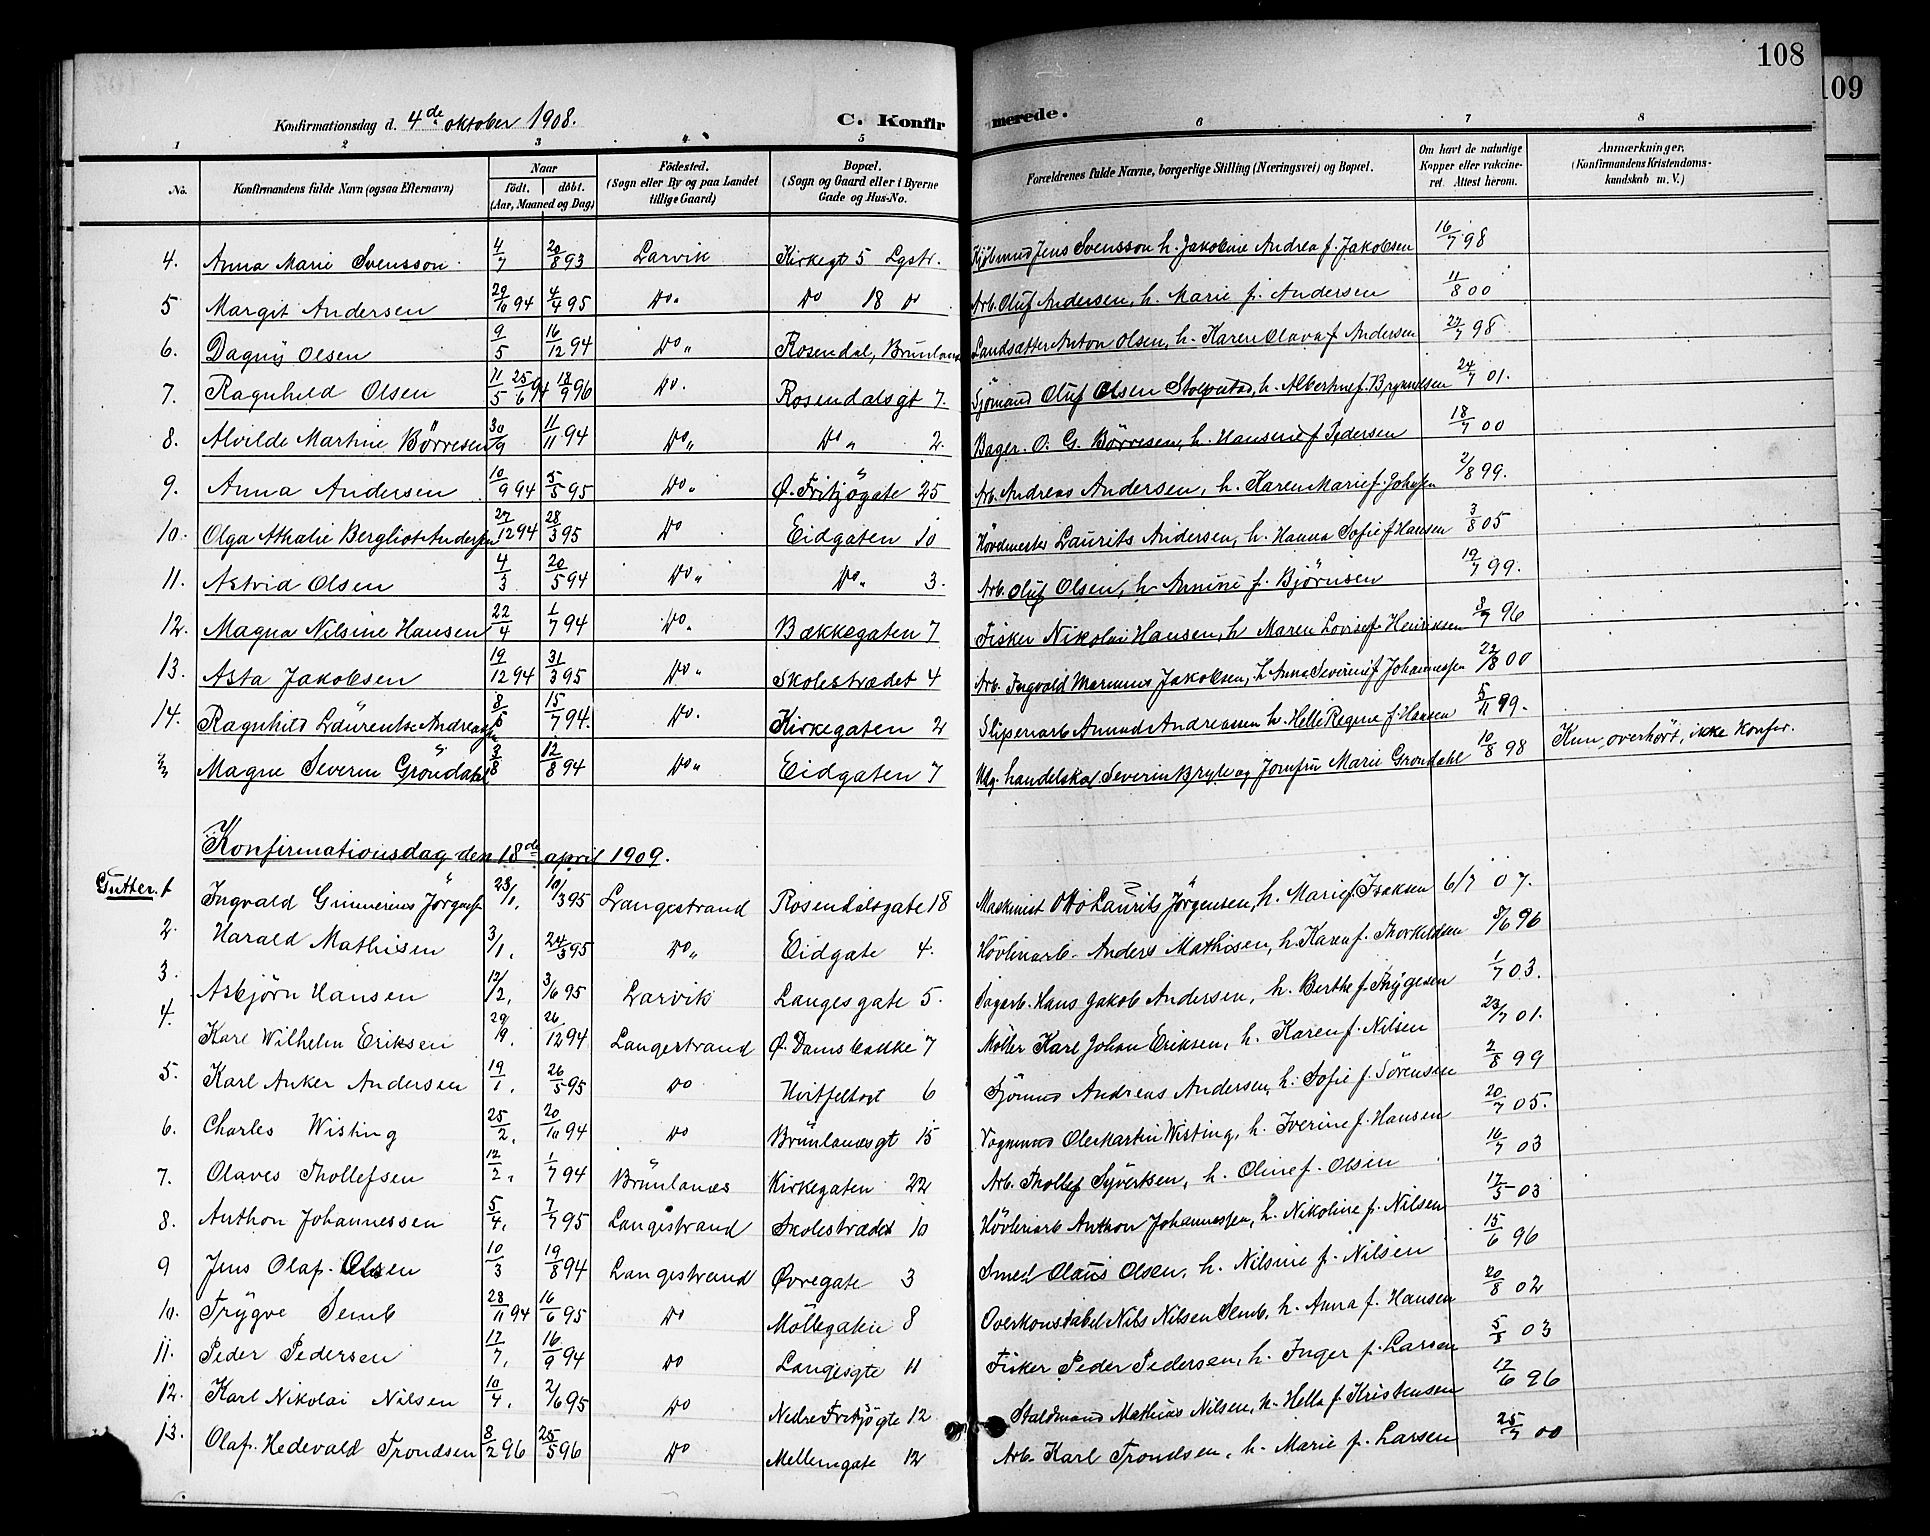 108
109
Konfirmationsdag d. 4de oktober 1908. C. Konfirmerede.
1 2 3 4 5 6 7 8
No. Konfirmandens fulde Navn (ogsaa Efternavn) Naar födt. döbt. (Aar, Maaned og Dag) Födested. (Sogn eller By og paa Landet tillige Gaard) Bopæl. (Sogn og Gaard eller i Byerne Gade og Hus-No. Forældrenes fulde Navne, borgerlige Stilling (Næringsvei) og Bopæl. Om havt de naturlige Kopper eller vakcineret. Attest herom. Anmærkninger. (Konfirmandens Kristendomskundskab m. V.)
4. Anna Marie Svensson. 4/7 20/8 93 Larvik Kirkegt 5 Lgstr. Kjöbmnd Jens Svensson h. Jakobine Andrea f. Jakobsen 16/7 98
5 Margit Andersen 29/6 94 4/4 95 Do. Do 18 Do Arb. Oluf Andersen, h. Marie f. Andersen 11/8 00
6. Dagny Olsen 9/5 16/12 94 Do„ Rosendal, Brunlanes Landsætter Anton Olsen, h. Karen Olava f. Andersen 27/7 98
7. Ragnhild Olsen 11/5 25/6 94 18/9 96 Do. Rosendalsgt 7. Sjömand Oluf Olsen Stolpestad, h. Albertine f. Brynildsen 24/7 01.
8. Alvilde Martine Börresen 30/9 11/11 94 Do„ Do„ 2 Bager. O. G. Börresen, h. Hanserie f. Pedersen 18/7 00
9. Anna Andersen 10/9 94 5/5 95 Do„ Ø. Fritzögate 25 Arb. Andreas Andersen, h. Karen Marie f. Johnsen 2/8 99.
10. Olga Athalie Bergliot Andersen 27/12 94 28/3 95 Do Eidgaten 10 Hövdmester Laurits Andersen, h. Hanna Sofie f Hansen 3/8 05
11. Astrid Olsen 4/3 20/5 94 Do„ Do„ 3. Arb. Oluf Olsen, h Annine f. Björnsen 19/7 99.
12. Magna Nilsine Hansen 22/4 1/7 94 Do. Bækkegaten 7 Fisker Nikolai Hansen, h Maren Lovise f. Henriksen 8/7 96
13. Asta Jakobsen 19/12 94 31/3 95 Do„ Skolestrædet 4 Arb. Ingvald Marinius Jakobsen, h Anna Severine f Johannessen 22/8 00
14. Ragnhild Laurentze Andreassen 8/5 15/7 94. Do. Kirkegaten 2 Sliperiarb Amund Andreassen h. Helle Regine f. Hansen 5/11 99.
Magne Severin Gröndahl 3/8 12/8 94 Do„ Eidgaten 7 Ug. handelskar Severin Bryle og Jomfru Marie Grondahl 10/8 98 Kun overhört, ikke konfir.
Konfirmationsdag den 18de april 1909.
Gutter. 1 Ingvald Gunnerius Jörgensen 23/1. 10/3 95 Langestrand Rosendalsgate 18 Maskinist Otto Laurits Jörgensen, h. Marie f. Isaksen 6/7 07.
2. Harald Mathisen 3/1. 24/3 95 Do„ Eidgate 4. Hövleriarb. Anders Mathisen, h. Karen f. Thorkildsen 8/6 96
3. Asbjörn Hansen 12/2. 3/6 95 Larvik Langesgate 5. Sagarb. Hans Jakob Andersen, h. Berthe f. Thygesen 1/7 03.
4. Karl Wilhelm Eriksen 29/9. 26/12 94 Langestrand Ø. Damsbakke 7 Möller Karl Johan Eriksen, h. Karen f. Nilsen 23/7 01.
5. Karl Anker Andersen 19/1. 26/5 95 Do Hvitfeltsgt 6 Sjömnd Andreas Andersen, h. Sofie f. Sörensen 2/8 99
6. Charles Wisting 25/2. 20/10 94 Do Brunlanesgt 15 Vognmnd Ole Martin Wisting, h. Iverine f. Hansen 20/7 05.
7. Olaves Thollefsen 12/2. 1/7 94 Brunlanes Kirkegaten 22 Arb. Thollef Syvertsen, h. Oline f. Olsen 16/7 03
8. Anthon Johannessen 5/4. 7/7 95 Langestrand Skolestrædet 10 Hövleriarb Anthon Johannessen, h. Nikoline f. Nilsen 17/5 03
9 Jens Olaf. Olsen 10/3 19/8 94 Langestrand Övregate 3 Smed Olaus Olsen, h. Nilsine f. Nilsen 15/6 96
10. Trygve Semb 28/11 94 16/6 95 Do Möllegaten 8 Overkonstabel Nils Nilsen Semb, h. Anna f. Hansen 20/8 02
11. Peder Pedersen 17/7. 16/9 94 Do Langesgte 11 Fisker Peder Pedersen, h. Inger f. Larsen 5/8 03
12. Karl Nikolai Nilsen 10/4. 2/6 95 Do Nedre Fritzögte 12 Staldmand Mathias Nilsen, h. Hella f. Kristensen 17/6 96
13. Olaf. Hedevald Trondsen 8/2 96 25/5 96 Do Mellemgate 12 Arb. Karl Trondsen, h. Marie f. Larsen 25/7 00